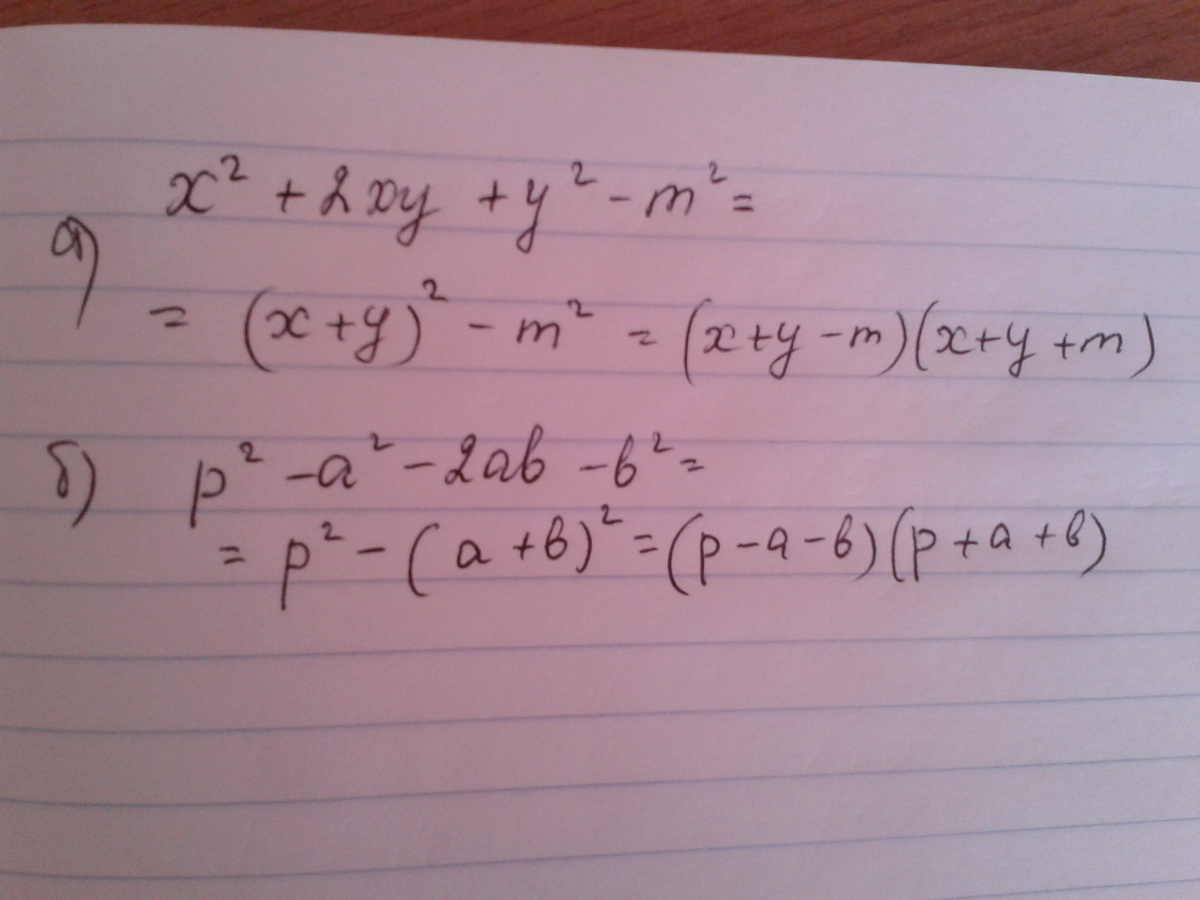 а) x² + 2xy + y² - m² =
= (x+y)² - m² = (x+y-m)(x+y+m)
б) p² - a² - 2ab - b² =
= p² - (a+b)² = (p-a-b)(p+a+b)